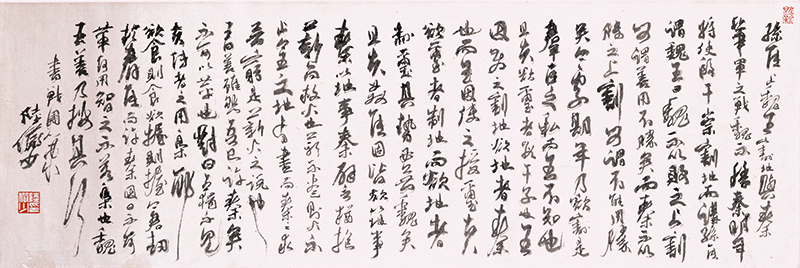 孫臣止魏王割地與秦
華軍之戰魏不勝秦明年
將使段干崇割地而講孫臣
謂魏王曰魏不以敗之上割
可謂善用不勝矣而秦不以
勝之上割可謂不能用勝
矣今處期年乃欲割是
羣臣之私而王不知也
且夫欲璽者段干子也王
因使之割地欲地者秦
也而王因使之授璽夫
欲璽者制地而欲地者
制璽其勢必無魏矣
且夫姦臣固皆欲以地事
秦以地事秦譬猶抱
薪而救火也薪不盡則火不
止今王之地有盡而秦之求
無窮是薪火之說也魏
王曰善雖然吾已許秦矣
不可以革也對曰王獨不見
夫博者之用梟邪
欲食則食欲握則握今君劫
於羣臣而許秦因曰不可
革何用智之不若梟也魏
王曰善乃按其行
書戰國策
陸儼少